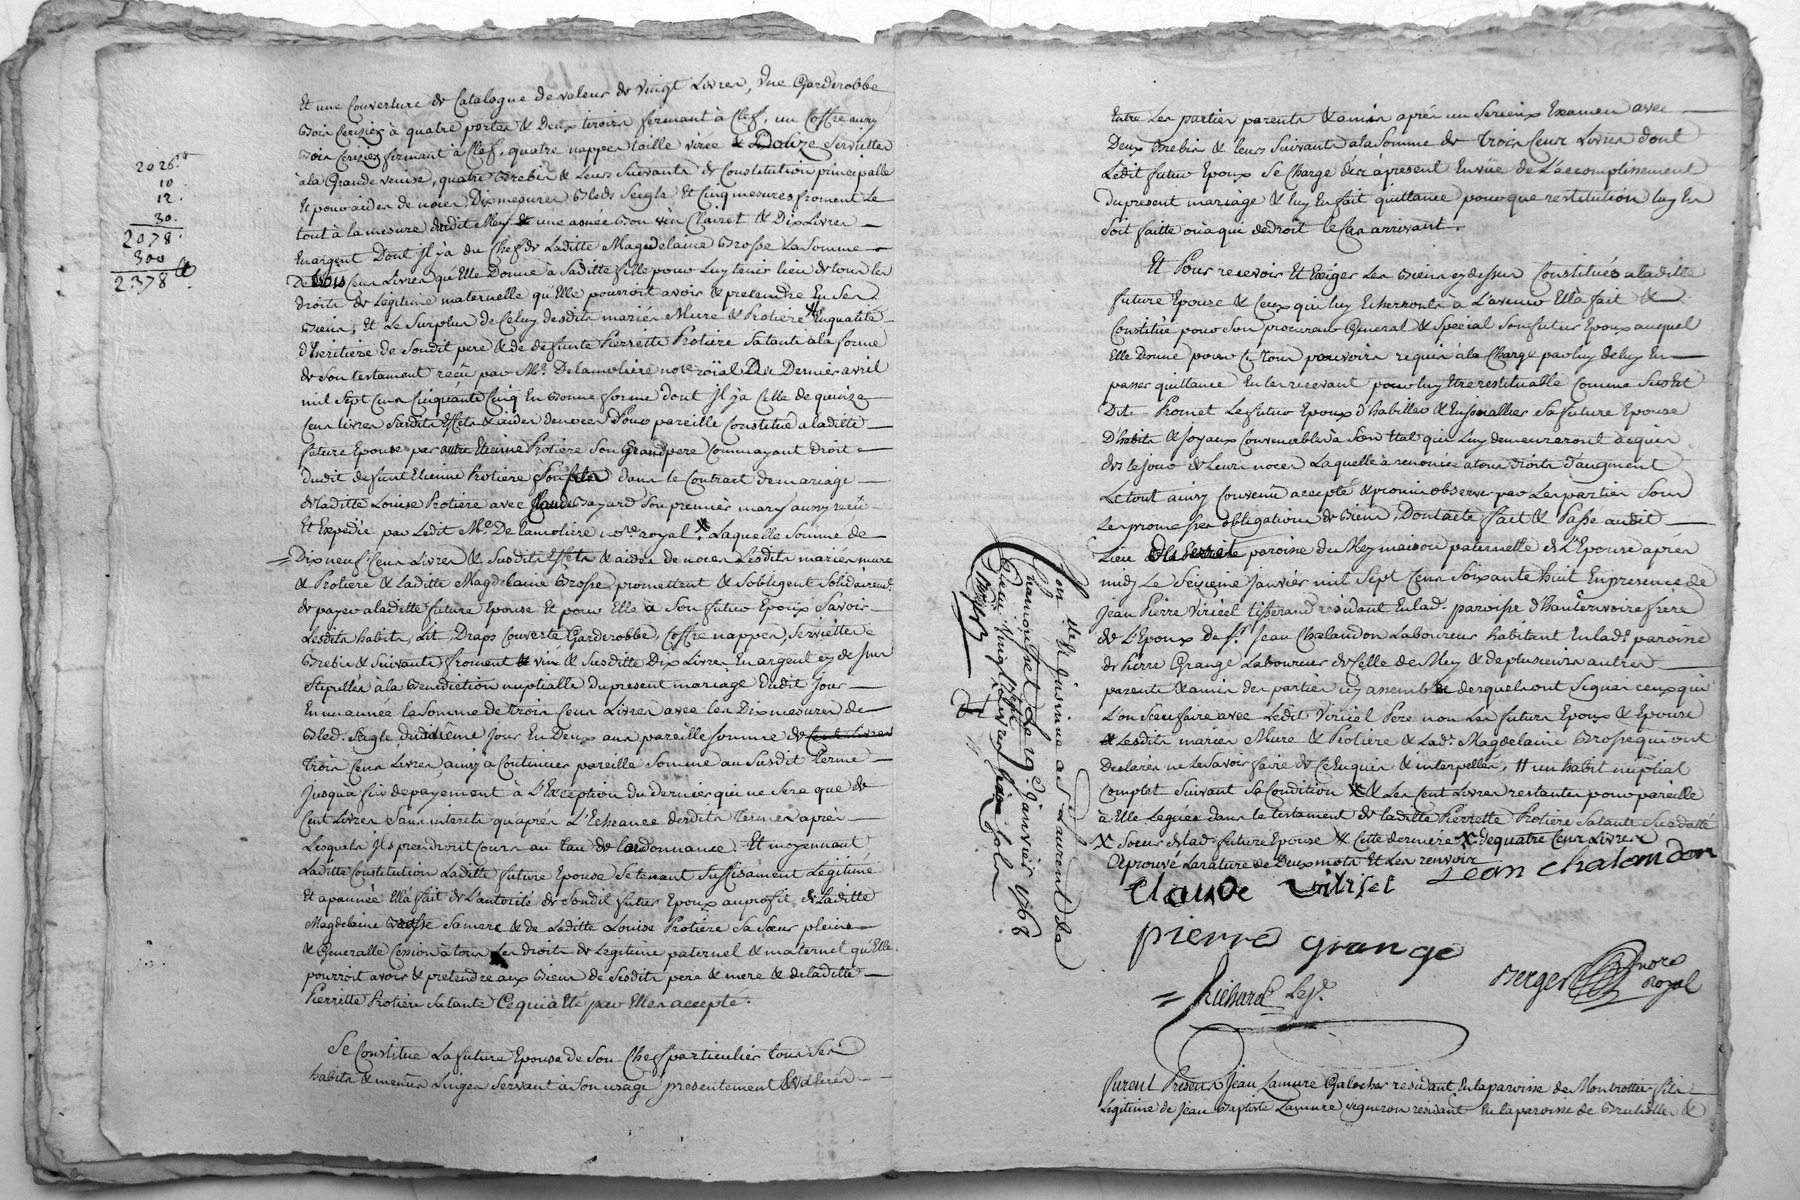 2026ᵗᵗ
10.
12.
30.
2078.
300
2378ᵗᵗ
Et une Couverture de Catalogne de valeur de vingt Livres, Une Garderobbe
Bois Cerisier à quatre portes & Deux tiroirs fermant à Clef, un Coffre aussy
Bois Cerisier fermant à Clef, quatre nappes toille & Douze Serviettes
àla Grande venise, quatre Brebis & Leurs Suivants de Constitution principalle
Et pour aides de noces Dix mesures Bleds Seigle Et Cinq mesures froment Le
tout à la mesure dudit Mey & une asnée Bon vin Clairet & Dix Livres
En argent Dont Il y a du Chef de Laditte Magdelaine Brosse La Somme
De trois Cens Livres qu'Elle Donne à Saditte fille pour Luy tenir lieu de tous les
droits de Legitime maternelle qu'Elle pourroit avoir & pretendre En Ses
Biens, Et Le Surplus de Celuy desdits mariés Mure & Protiere En qualité
d'heritiere de Sondit pere & de defunte Pierrette Protiere Sa tante à la forme
de Son testament reçû par Mᵉ. Delamoliere noʳᵉ roïal Du Dernier avril
mil Sept Cens Cinquante Cinq En Bonne forme dont Il y a Celle de quinze
Cens livres Susdits Effets & aides de noces Pour pareille Constitué a laditte
future Epouse par autre Etienne Protiere Son Grand pere Commayant droit
dudit defunt Etienne Protiere Son fils dans le Contract de mariage
de Laditte Louise Protiere avec Claude Bayard Son premier mary aussy reçû
Et Expedié par Ledit Mᵉ. De Lamoliere noʳᵉ royal. X Laquelle Somme de
= Dix neuf Cens Livres & Susdits Effets & aides de noces Lesdits mariés mure
& Protiere & Laditte Magdelaine Brosse promettent & Sobligent Solidairemᵗ
de payer a laditte future Epouse Et pour Elle à Son futur Epoux Savoir
Lesdits habits, Lit, Draps Couverte Garderobbe, Coffre nappes, Serviettes
Brebis & Suivants froment & vin & Susditte Dix Livres En argent cy dessus
Stipullés à la Benediction nuptialle du present mariage Dudit Jour
En une année la Somme de trois Cens Livres avec les Dix mesures de
Bled Seigle, du même Jour En Deux ans pareille Somme de Cent Livres
Trois Cens Livres, ainsy à Continuer pareille Somme au Susdit Terme
Jusqu'à fin de payement à L'Exception du dernier qui ne Sera que de
Cent Livres Sans interets qu'après L'Echeance desdits Termes après
Lesquels Ils prendront Cours au taux de Lordonnance. Et moyennant
Laditte Constitution Laditte future Epouse Se tenant Suffisament Legitimé
Et apannée Ella fait de L'autorité de Sondit futur Epoux au profit de Laditte
Magdelaine Brosse Sa mere & de Laditte Louise Protiere Sa Sœur pleine
& Generalle Cession à tous Les droits de Legitime paternel & maternel qu'Elle
pourroit avoir & pretendre aux Biens de Sesdits pere & mere & de laditte
Pierrette Protiere Sa tante Ce qui a Eté par Elles accepté.
Se Constitue La future Epouse de Son Chef particulier tous Ses
habits & menus Linges Servant à Son usage presentement
Entre Les parties parents & amis après un Serieux Examen avec
Deux Brebis & leurs Suivants a la Somme de Trois Cens Livres dont
Ledit futur Epoux Se Charge dès à present En vüe de L'accomplissement
du present mariage & luy En fait quittance pour que restitution luy En
Soit faitte ou à qui de droit le Cas arrivant.
Et Pour recevoir Et Exiger Les Biens cy dessus Constitués a laditte
future Epouse & Ceux qui luy Echerront à L'avenir Ella fait &
Constitue pour Son procureur General & Special Son futur Epoux auquel
Elle Donne pour Ce tous pouvoirs requis à la Charge par luy de luy En
passer quittance En les recevant pour luy Etre restituable Comme Sus Est
Dit. Promet Le futur Epoux d'habiller & Enjoualler Sa future Epouse
D'habits & Joyaux Convenables à Son Etat qui Luy demeureront acquis
dès le jour de Leurs noces Laquelle à renoncé a tous droits d'augment
Le tout ainsy Convenû accepté & promis observer par Les parties Sous
Les promesses obligations de Biens, Dont acte fait & Passé au dit
Lieu de la paroisse du Mey maison paternelle de L'Epouse après
midy Le Seizieme Janvier mil Sept Cens Soixante huit En presence de
Jean Pierre Viricel tisserand residant En lad. paroisse d'hauterivoire frère
de L'Epoux de Sʳ. Jean Chalandon Laboureur habitant En lade paroisse
de Pierre Grange Laboureur de Celle de Mey & de plusieurs autres
parents & amis des parties icy assemblés desquels ont Signés ceux qui
L'on Sceu faire avec Ledit Viricel Pere non Les futurs Epoux & Epouse
& Lesdits mariés Mure & Protiere & Ladᵉ. Magdelaine Brosse qui ont
Declarés ne Le Savoir faire de Ce Enquis & interpellés. ‡‡ un habit nuptial
Complet Suivant Sa Condition X & Les Cent Livres restantes pour pareille
à Elle Leguée dans le testament de laditte Pierrette Protiere Sa tante Susdatté
X Sœur de Lad. future Epouse & Cette derniere X de quatre Cens Livres
Aprouvé La rature de Deux mots Et Les renvois
Claude viriset
Jean chalandon
pierre grange
Berger noʳᵉ Royal
= Richard Leʲᵉ.
Furent Presens Jean Lamure Galocher residant En la paroisse de Montrottier fils
Legitime de Jean Baptiste Lamure vigneron residant En la paroisse de Brullioles &
Con.lle & Insinué a Sᵗ Laurent de
Chamousset Le 29 Janvier 1768